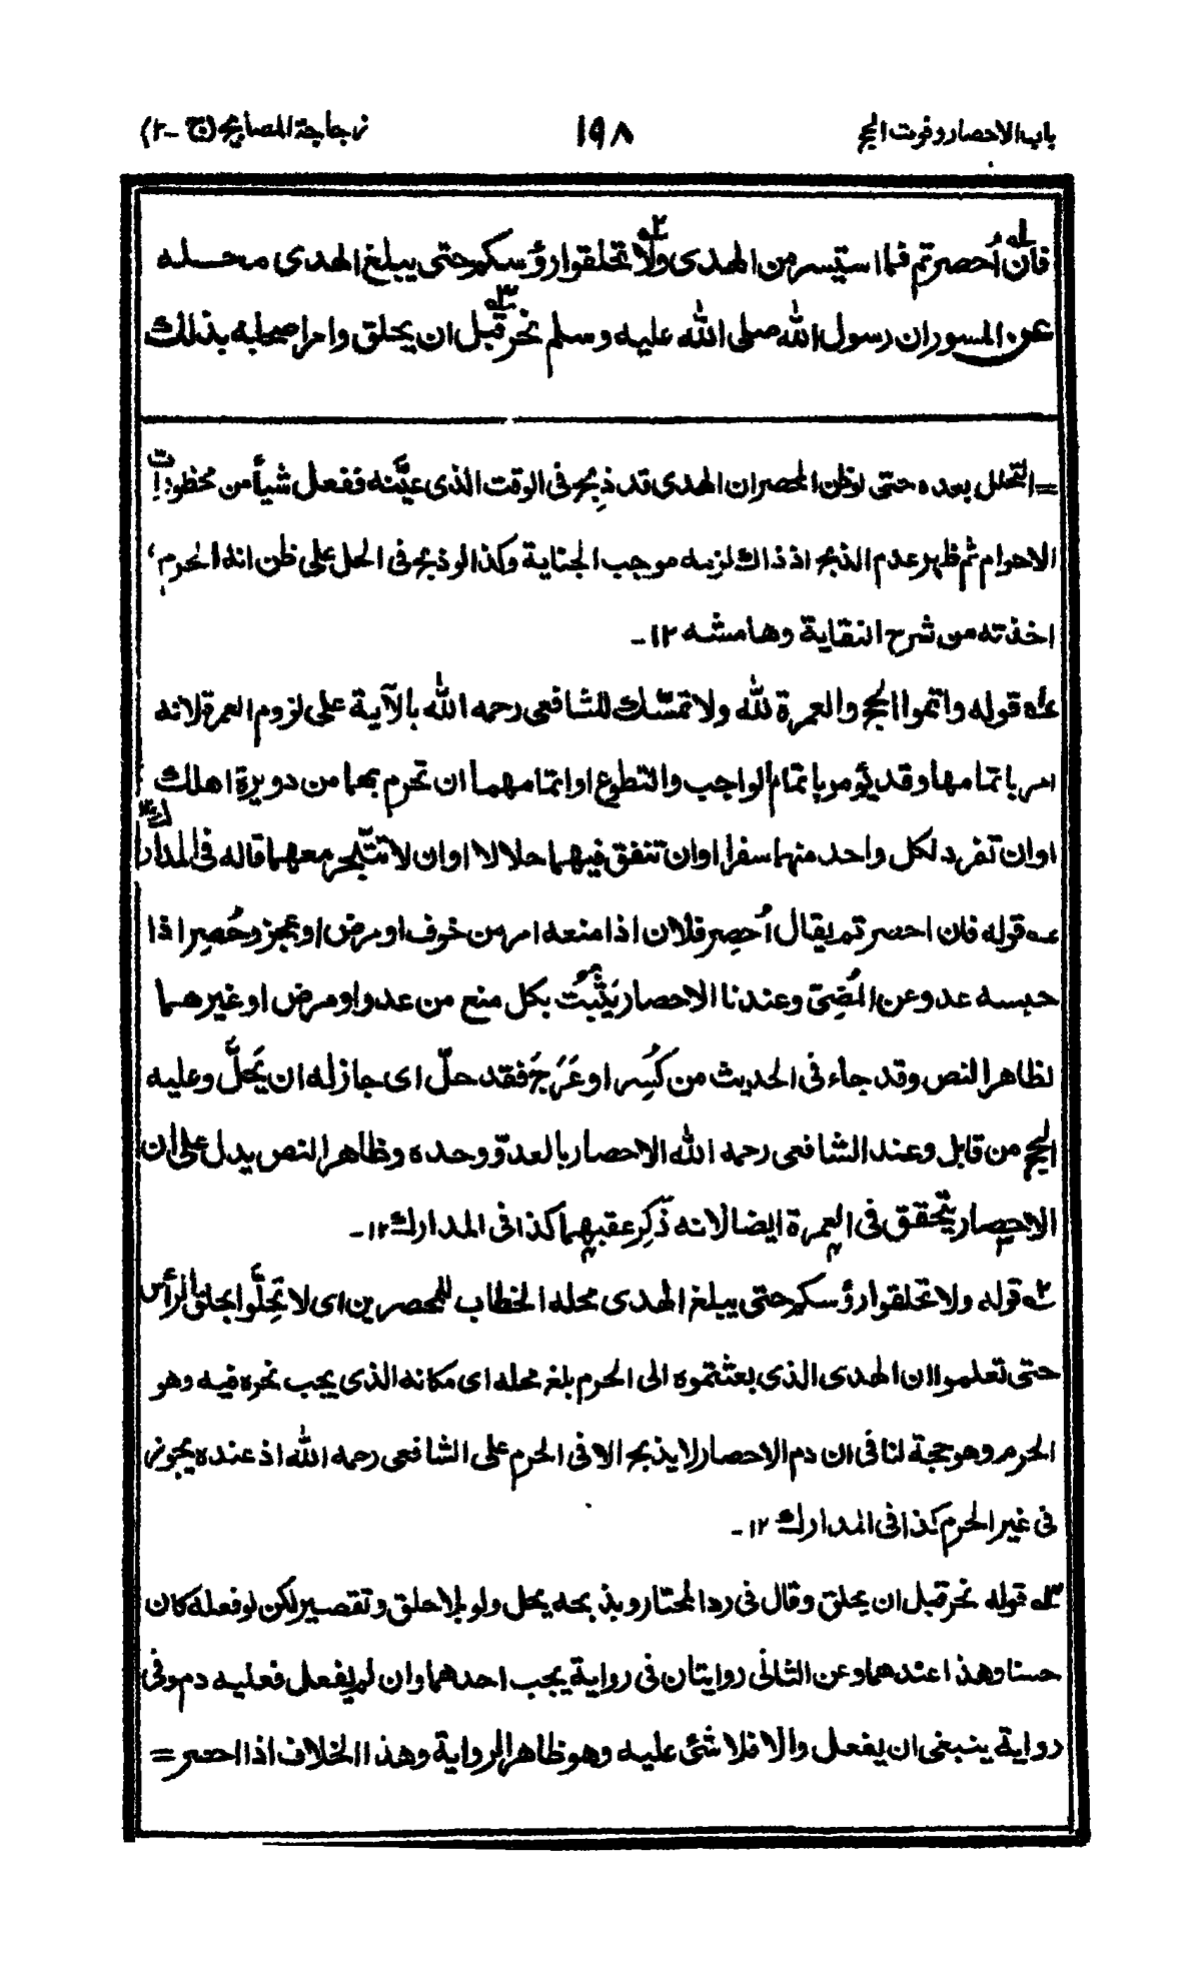 باب الاحصار وفوت الحج ١٩٨ زجاجة المصابيح (ج -٢)
فان١ه اُحصرتم فما استيسر من الهدى ولا٢ه تحلقوا رؤسكم حتى يبلغ الهدى محله
عن المسور ان رسول الله صلى الله عليه وسلم نحر٣ه قبل ان يحلق وامر اصحابه بذلك
=التحلل بعده حتى لو ظن المحصر ان الهدى قد ذُبِح فى الوقت الذى عيَّنه ففعل شيأ من محظورات
الاحرام ثم ظهر عدم الذبح اذ ذاك لزمه موجب الجناية وكذا لو ذبح فى الحل على ظن انه الحرم،
اخذته من شرح النقاية وهامشه ١٢-
عه قوله واتموا الحج والعمرة لله ولا تمسّك للشافعى رحمه الله بالآية على لزوم العمرة لانه
امر باتمامها وقد يؤمر باتمام الواجب والتطوع او اتمامهما ان تحرم بهما من دويرة اهلك
او ان تفرد لكل واحد منهما سفرا او ان تنفق فيهما حلالا او ان لا تتّجر معهما قاله فى المدارك
١ه قوله فان احصرتم يقال اُحصِر فلان اذا منعه امر من خوف او مرض او عجز وحُصِر اذا
حبسه عدو عن المُضِىّ وعندنا الاحصار يَثْبُتُ بكل منع من عدو او مرض او غيرهما
لظاهر النص وقد جاء فى الحديث من كُسِر او عَرَجَ فقد حلّ اى جاز له ان يَحِلَّ وعليه
الحج من قابل وعند الشافعى رحمه الله الاحصار بالعدوّ وحده وظاهر النص يدل على ان
الاحصار يتحقق فى العمرة ايضا لانه ذُكِر عقبهما كذا فى المدارك ١٢-
٢ه قوله ولا تحلقوا رؤسكم حتى يبلغ الهدى محله الخطاب للمحصرين اى لا تحِلُّوا بحلق الرأس
حتى تعلموا ان الهدى الذى بعثتموه الى الحرم بلغ محله اى مكانه الذى يجب نحره فيه وهو
الحرم وهو حجة لنا فى ان دم الاحصار لا يذبح الا فى الحرم على الشافعى رحمه الله اذ عنده يجوز
فى غير الحرم كذا فى المدارك ١٢-
٣ه قوله نحر قبل ان يحلق وقال فى رد المحتار وبذبحه يحل ولو بلا حلق وتقصير لكن لو فعله كان
حسنا وهذا عندهما وعن الثانى روايتان فى رواية يجب احدهما وان لم يفعل فعليه دم وفى
رواية ينبغى ان يفعل والا فلا شئ عليه وهو ظاهر الرواية وهذا الخلاف اذا احصر =